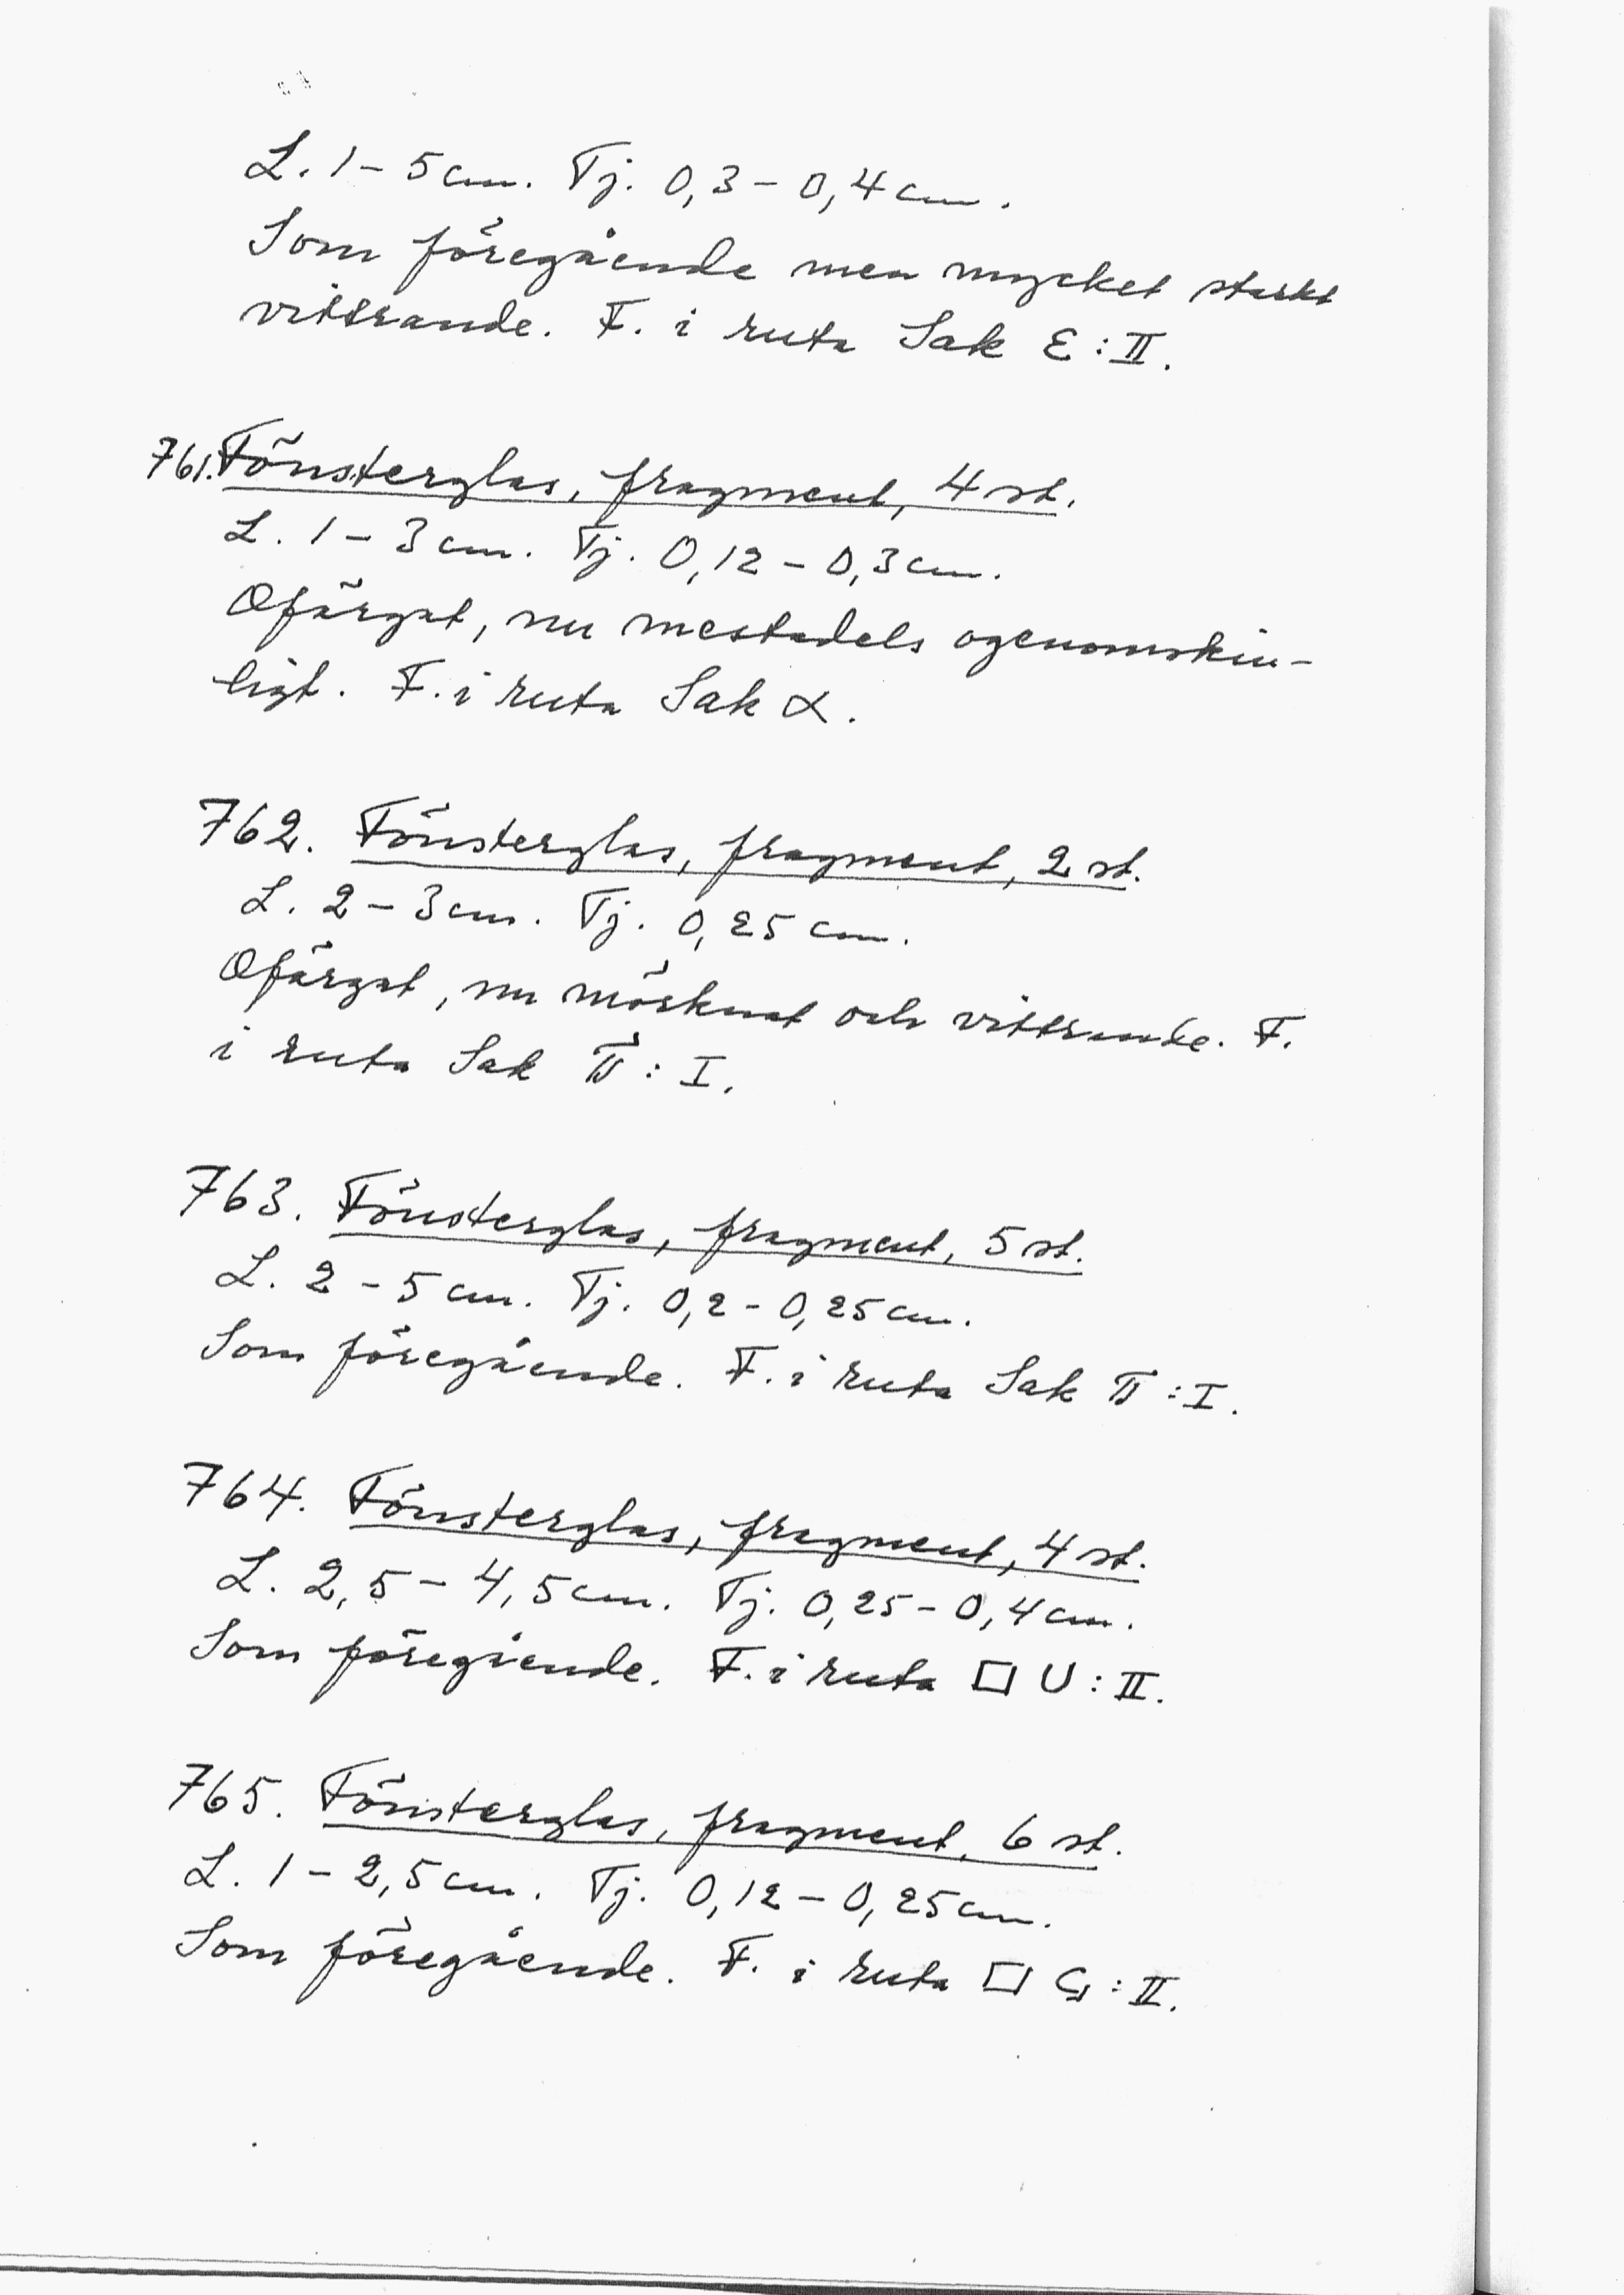 L. 1 – 5 cm. Tj. 0,3 – 0,4 cm.
Som föregående men mycket starkt
vittrande. F. i ruta Sak Ɛ : II.
761. Fönsterglas, fragment, 4 st.
L. 1 – 3 cm. Tj. 0,12 – 0,3 cm.
Ofärgat, nu mestadels ogenomskin-
ligt. F. i ruta Sak α.
762. Fönsterglas, fragment, 2 st.
L. 2 – 3 cm. Tj. 0,25 cm.
Ofärgat, nu mörknat och vittrande. F.
i ruta Sak π : I.
763. Fönsterglas, fragment, 5 st.
L. 2 – 5 cm. Tj. 0,2 – 0,25 cm.
Som föregående. F. i ruta Sak π : I.
764. Fönsterglas, fragment, 4 st.
L. 2,5 – 4,5 cm. Tj. 0,25 – 0,4 cm.
Som föregående. F. i ruta □ U : II.
765. Fönsterglas, fragment, 6 st.
L. 1 – 2,5 cm. Tj. 0,12 – 0,25 cm.
Som föregående. F. i ruta □ G : II.